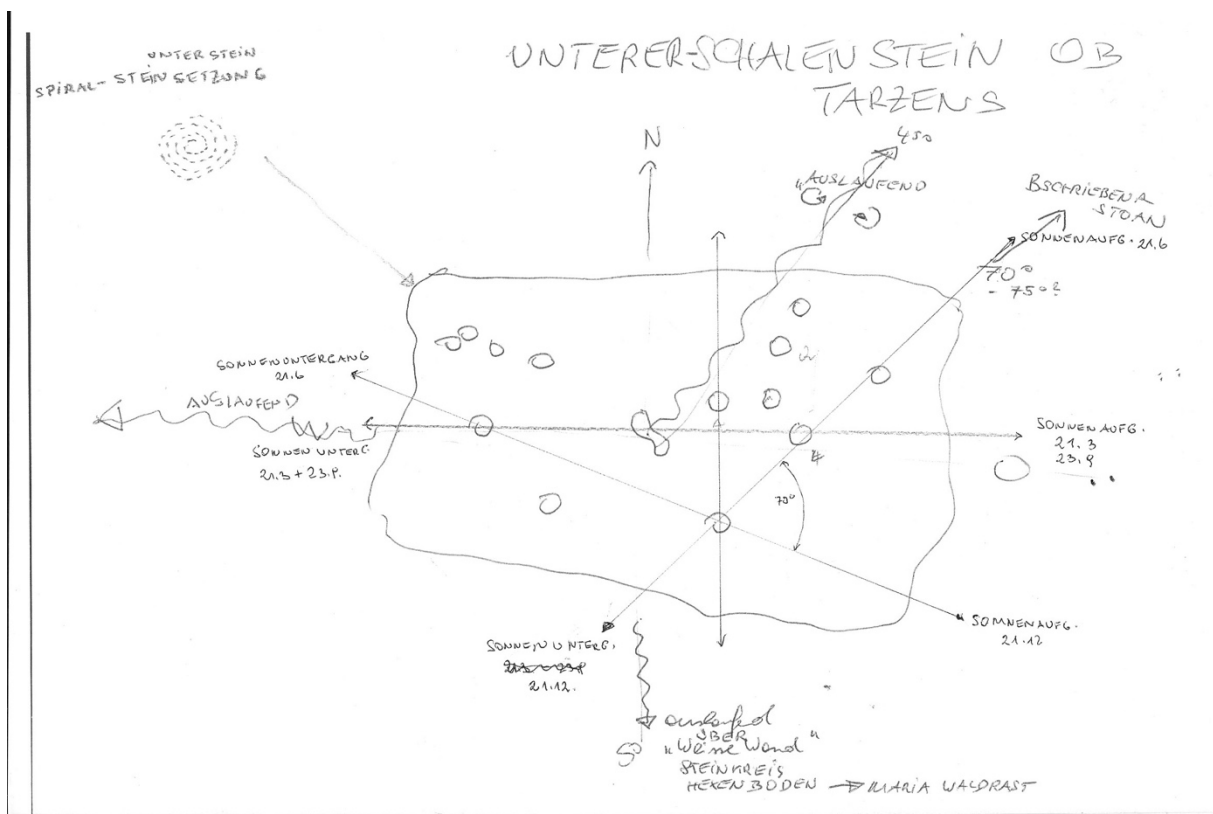 UNTERER-SCHALENSTEIN OB
TARZENS
UNTER STEIN
SPIRAL-STEINSETZUNG
N
450
"AUSLAUFEND
BSCHRIEBENA
STOAN
SONNENAUFG. 21.6
70°
- 75°?
SONNENUNTERGANG
21.6
AUSLAUFEND
SONNENUNTERG.
21.3 + 23.9.
SONNENAUFG.
21.3
23.9
70°
SONNENUNTERG.
21.12.
SONNENAUFG.
21.12
auslaufed
ÜBER
"Weisse Wand"
STEINKREIS
HEXENBODEN → MARIA WALDRAST